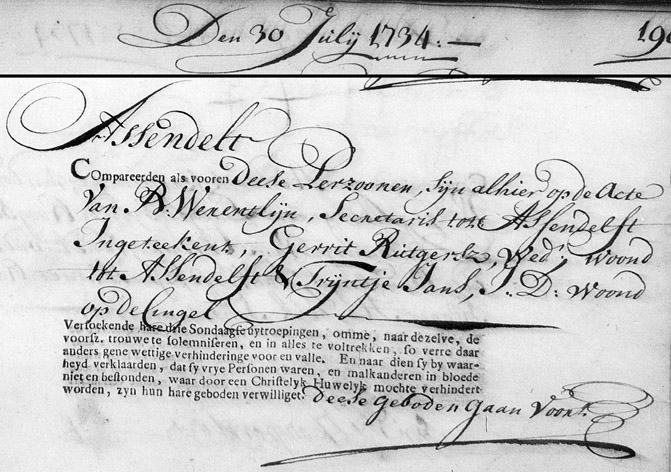 Den 30 July 1734. — 19
Assendelt
Compareerden als vooren Deese Perzoonen, sijn alhier op de Acte
Van B. Wenentlijn, Secretaris tott Assendelft
Ingeteekent, Gerrit Rutgersz, Wedr. Woond
tot Assendelft & Trijntje Jans, J: D: Woond
op de Cingel
Versoekende hare drie Sondaagse uytroepingen, omme, naar dezelve, de
voorsz. trouwe te solemniseren, en in alles te voltrekken, so verre daar
anders gene wettige verhinderinge voor en valle. En naar dien sy by waar-
heyd verklaarden, dat sy vrye Personen waren, en malkanderen in bloede
niet en bestonden, waar door een Christelyk Huwelyk mochte verhindert
worden, zyn hun hare geboden verwilliget. Deese geboden Gaan Voort.